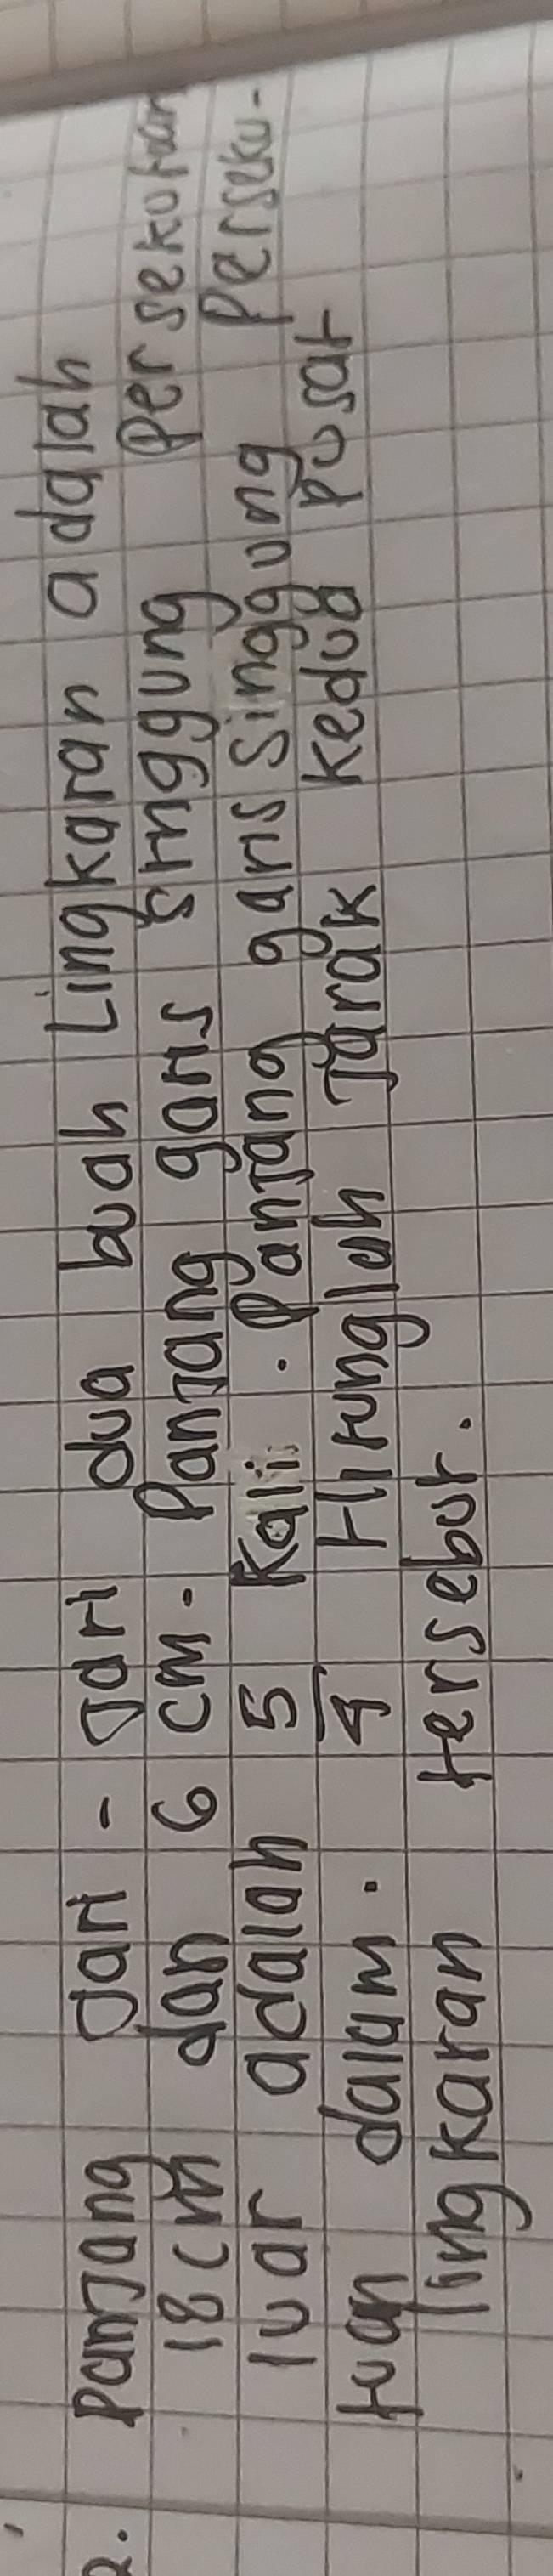 2. Panjang Jari - jari dua buah Lingkaran adalah
18 cm dan 6 cm. Panjang garis singgung Persekutuan
luar adalah 5/4 Kali. Panjang garis singgung Perseku-
tuan dalam. Hitunglah Jarak kedua pusat
lingkaran tersebut.